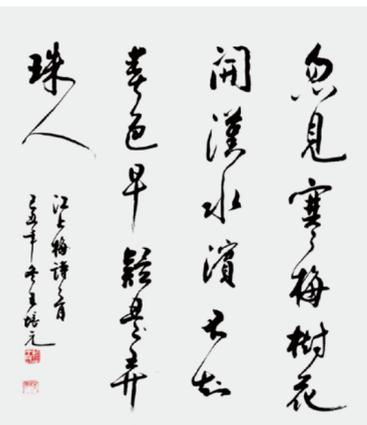 忽見寒梅樹花
開漢水濱不知
春色早疑是弄
珠人
江上梅詩一首
己丑年冬王培元